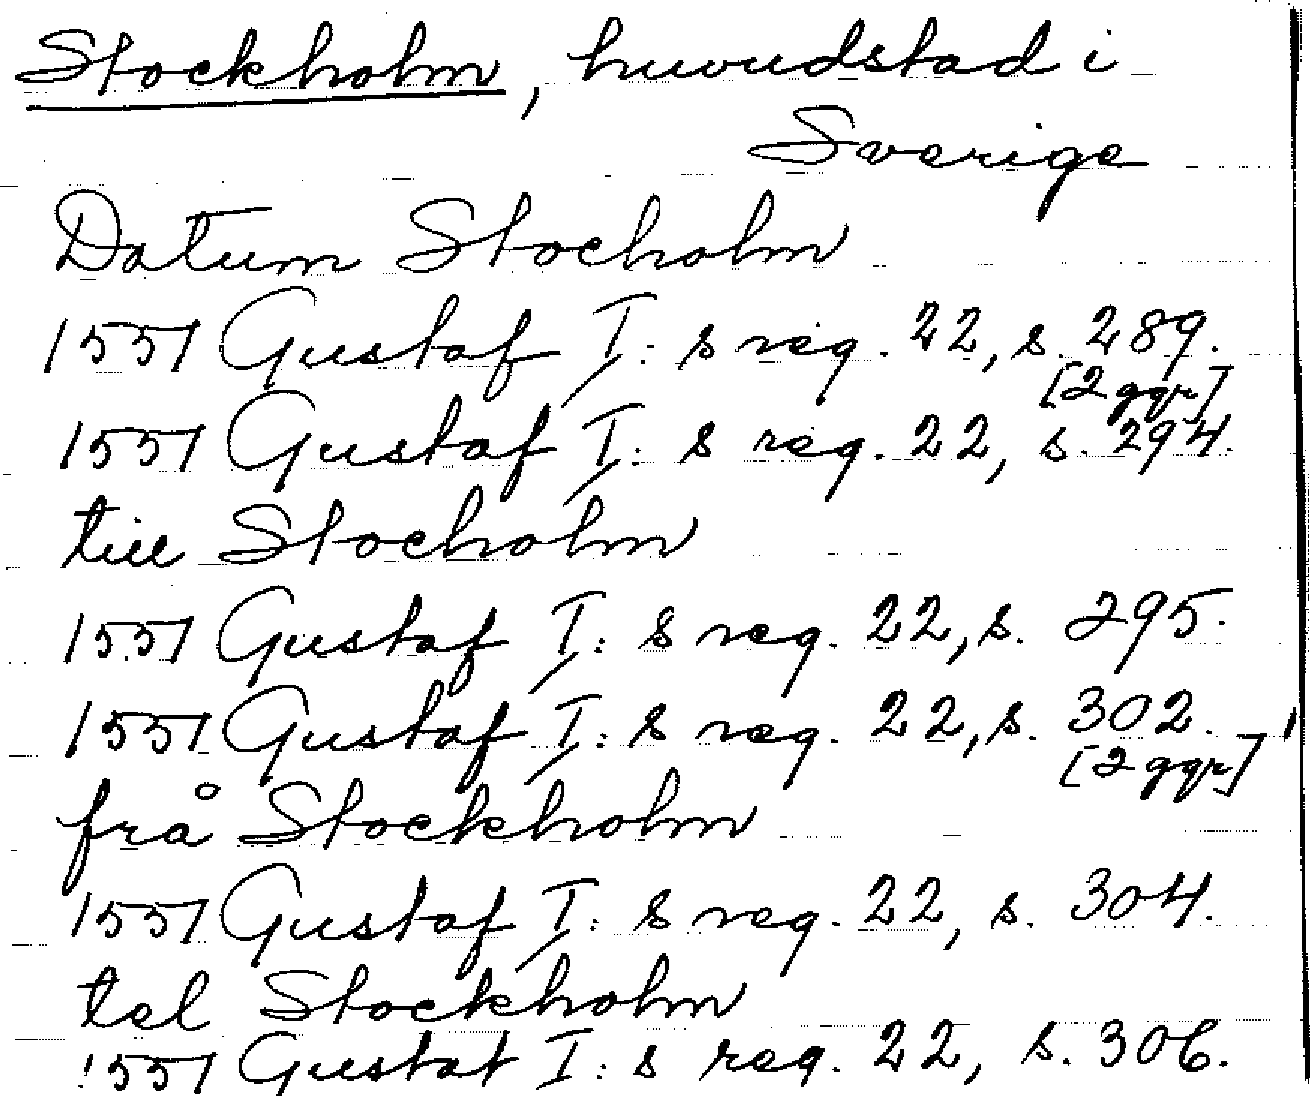 Stockholm, huvudstad i
Sverige
Datum Stocholm
1551 Gustaf I:s reg. 22, s. 289.
[2 ggr]
1551 Gustaf I:s reg. 22, s. 294.
till Stocholm
1551 Gustaf I:s reg. 22, s. 295.
1551 Gustaf I:s reg. 22, s. 302.
[2 ggr]
frå Stockholm
1551 Gustaf I:s reg. 22, s. 304.
tel Stockholm
1551 Gustaf I:s reg. 22, s. 306.